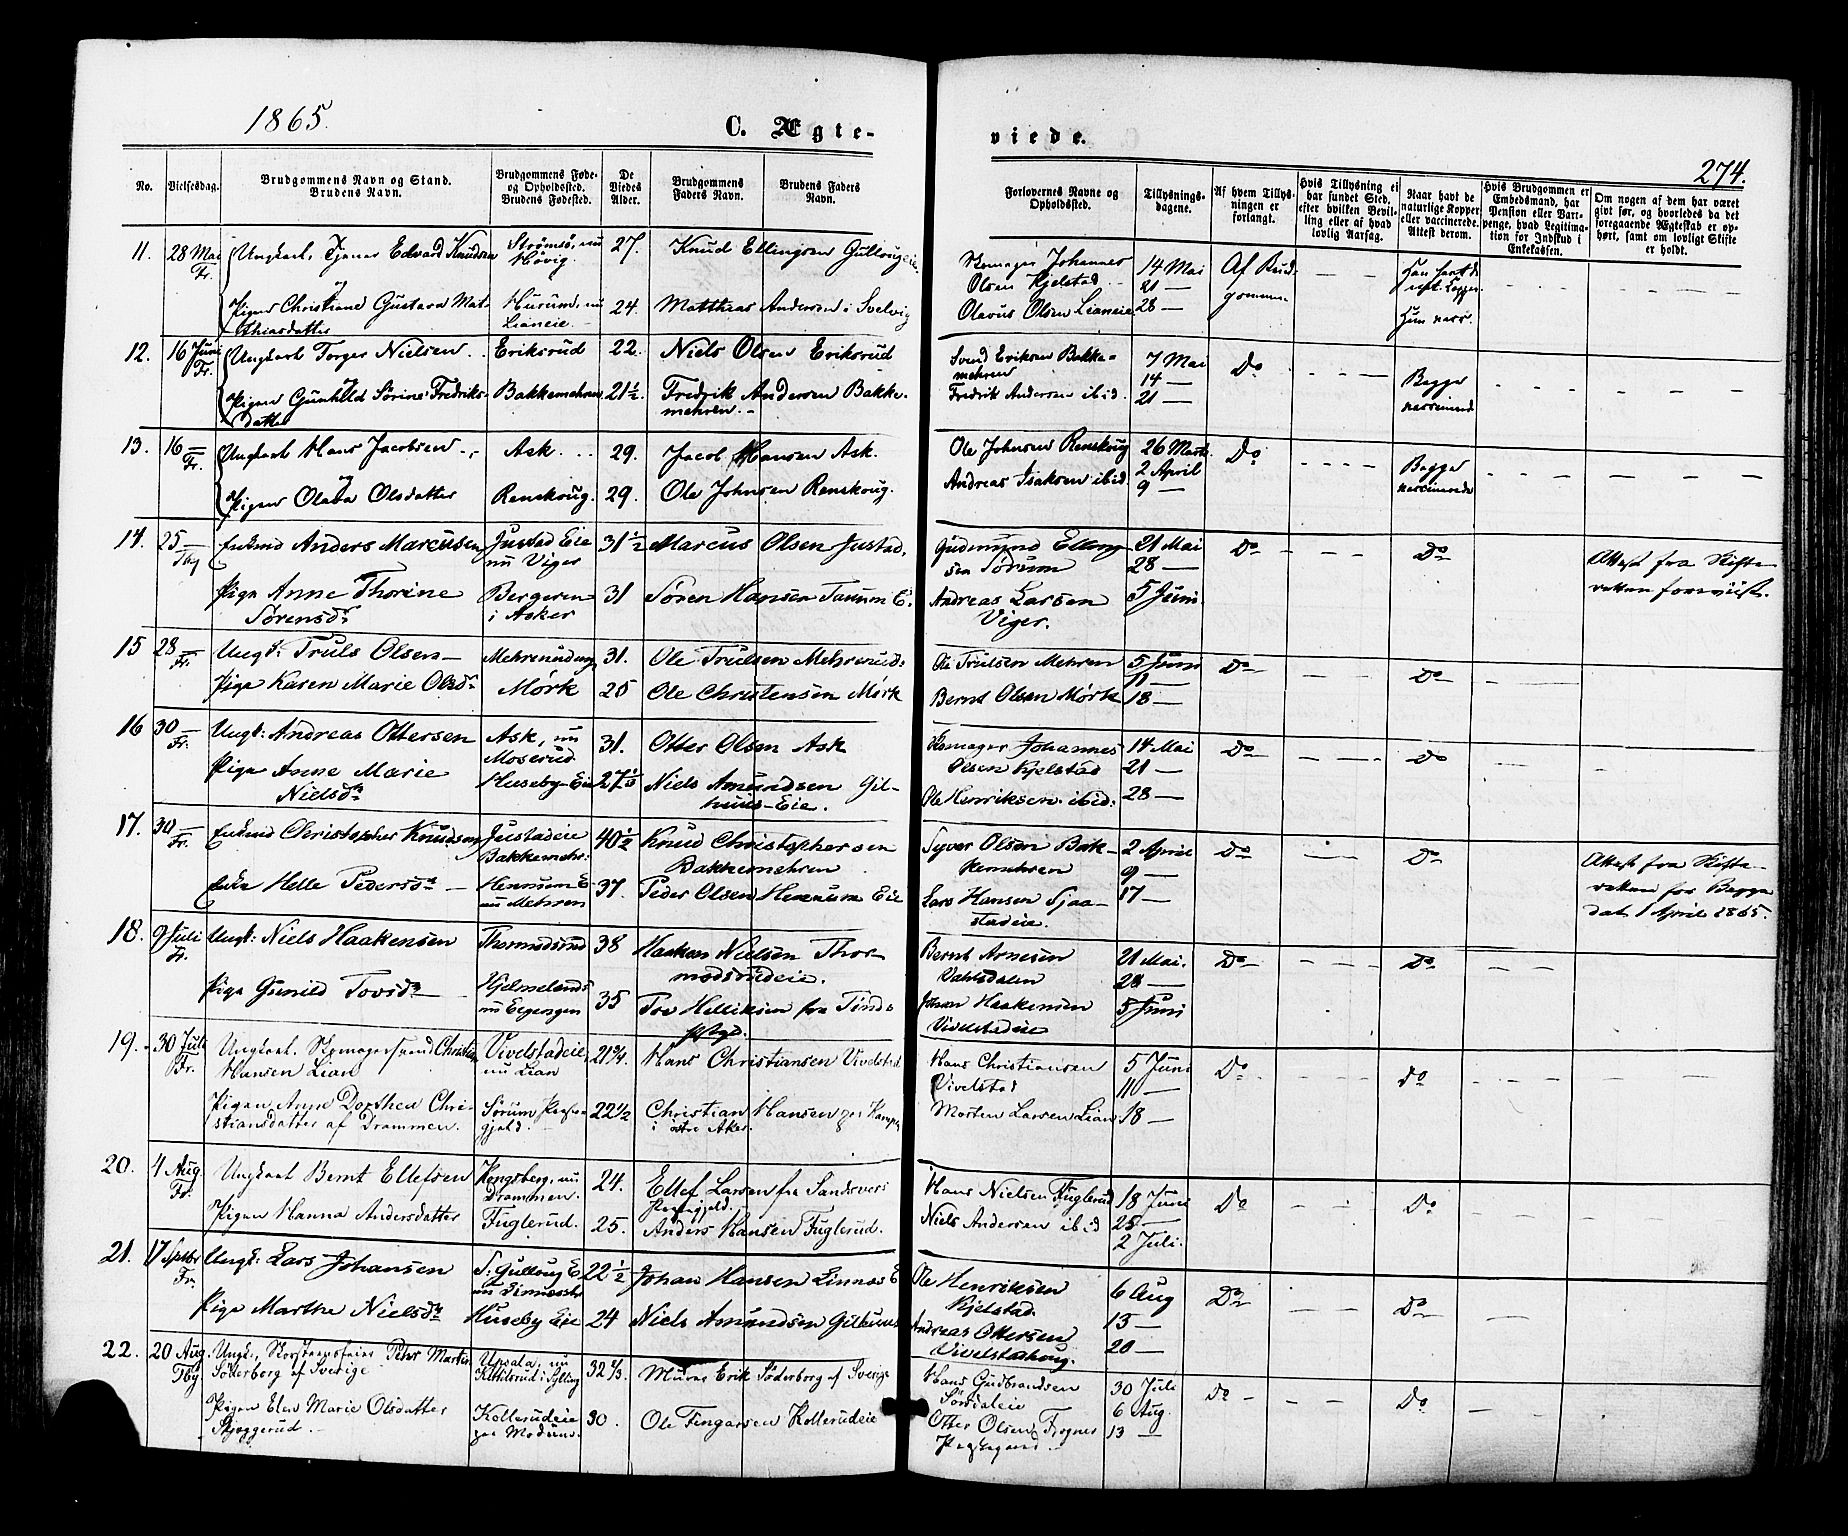 1865.
C. Ægte-
viede.
274.
No.
Vielsesdag.
Brudgommens Navn og Stand.
Brudens Navn.
Brudgommens Føde-
og Opholdssted.
Brudens Fødested.
De
Viedes
Alder.
Brudgommens
Faders Navn.
Brudens Faders
Navn.
Forlovernes Navne og
Opholdssted.
Tillysnings-
dagene.
Af hvem Tillys-
ningen er
forlangt.
Hvis Tillysning ei
har fundet Sted,
efter hvilken Bevil-
ling eller af hvad
lovlig Aarsag.
Naar havt de
naturlige Kopper
eller vaccinerede.
Attest derom.
Hvis Brudgommen er
Embedsmand, har
Pension eller Vart-
penge, hvad Legitima-
tion for Indskud i
Enkekassen.
Om nogen af dem har været
gift før, og hvorledes da det
foregaaende Ægteskab er op-
hørt, samt om lovligt Skifte
er holdt.
11. 28 Mai Fr. Ungkarl, Tjener Edvard Knudsen Strømsø, nu Høvig. 27. Knud Ellingsen Gullougeie Skomager Johannes Olsen Kjelstad. 14 Mai 21 — Af Brud-
gommen
Pigen Christine Gustava Mat-
thiasdatter Hurum, nu Lianeie. 24. Matthias Andersen i Svelvig Olavus Olsen Lianeie 28 — Hun vacc.
12. 16 Juni Fr. Ungkarl Torger Nielsen Eriksrud 22. Niels Olsen Eriksrud Svend Eriksen Bakke-
mehren 7 Mai 14 — Do
Pigen Gunhild Sørine Fredriks-
datter Bakkemehren 21½. Fredrik Andersen Bakke-
mehren. Fredrik Andersen ibid. 21 — Begge vaccinerede
13. 16 — Fr. Ungkarl Hans Jacobsen Ask. 29. Jacob Hansen Ask. Ole Johnsen Renskoug 26 Marts 2 April Do
Pigen Olava Olsdatter Renskoug. 29. Ole Johnsen Renskoug. Andreas Isaksen ibid. 9 — Begge vaccinerede
14. 25 — Tbg Enkmd Anders Marcusen Justad Eie nu Viger 31½ Marcus Olsen Justad, Gudmund Elling-
sen Sørum 21 Mai 28 — Do Do Attest fra Skifte-
retten foreviist.
Pige Anne Thorine
Sørensdr Bergeren i Asker 31 Søren Hansen Tanum E. Andreas Larsen
Viger. 5 Juni.
15 28 — Fr. Ungk: Truls Olsen Mehrenudeng 31. Ole Trulsen Mehrenud: Ole Trulsen Mehren 5 Juni 11 — Do Do
Pige Karen Marie Olsdr Mørk 25 Ole Christensen Mørk Bernt Olsen Mørk 18 —
16 30 — Fr. Ungk: Andreas Ottersen Ask, nu Moserud 31. Otter Olsen Ask Skomager Johannes
Olsen Kjelstad 14 Mai 21 — Do Do
Pige Anne Marie
Nielsdr Huseby-Eie 27½ Niels Amundsen Gil-
huus-Eie. Ole Henriksen ibid: 28 —
17. 30 — Fr. Enkmd Christopher Knudsen Justadeie Bakkemehr: 40½ Knud Christophersen
Bakkemehren Syver Olsen Bak-
kemehren 2 April 9 — Do Do Attest fra Skifte-
retten for Begge
dat. 1 April 1865.
Enke Helle Pedersdr Hennum E. nu Mehren 37. Peder Olsen Hennum Eie Lars Hansen Gjaa-
stadeie. 17 —
18. 9 Juli Fr. Ungk: Niels Haakensen Thormodsrud 38 Haakan Nielsen Thor-
modsrudeie. Bernt Arnesen
Dahlsdalen 21 Mai. 28 — Do Do
Pige Gunild Tovsdr Hjelmelands nu Eegengen 35 Tov Hellikson fra Tinds
Pstgd. Johan Haakensen
Vivelstadeie 5 Juni
19. 30 Juli Fr. Ungkarl, Skomagersvend Christian
Hansen Lian Vivelstadeie, nu Lian 21¾. Hans Christiansen Vivelstad Hans Christiansen
Vivelstad 5 Juni 11 — Do Do
Pigen Anne Dorthea Chri-
stiansdatter af Drammen. Sørum Præste-
gjeld. 22½ Christian Hansen paa Kampen
i østre Aker. Morten Larsen Lian 18 —
20. 4 Aug. Fr. Ungkarl Bernt Ellefsen Kongsberg, nu Drammen. 24. Ellef Larsen fra Sandsvær
Præstegjeld. Hans Nielsen Fuglerud 18 Juni Do Do
Pigen Hanna Andersdatter Fuglerud. 25. Anders Hansen Fuglerud. Niels Andersen ibid 25 — 2 Juli.
21. 17 Septbr Fr. Ungk: Lars Johansen S. Gulloug E 22½ Johan Hansen Linnæs E Ole Henriksen
Kjelstad. 6 Aug Do Do
Pige Marthe Nielsdr Huseby Eie 24 Niels Amundsen Gilhuus Andreas Ottersen
Vivelstadhoug. 13 — 20 —
22. 20 Aug. Tbg Ungk., Skorsteensfeier Pehr Martin
Söderborg af Sverige Upsala, nu Kittilsrud i Sylling 32⅔. Murer Erik Söderborg af Sverige Hans Gudbrandsen
Sørsdaleie 30 Juli 6 Aug. Do Do
Pigen Elen Marie Olsdatter
Skjeggerud. Kollerudeie paa Modum. 30. Ole Fingarsen Kollerudeie Otter Olsen Frogner
Præstegaard 13 —